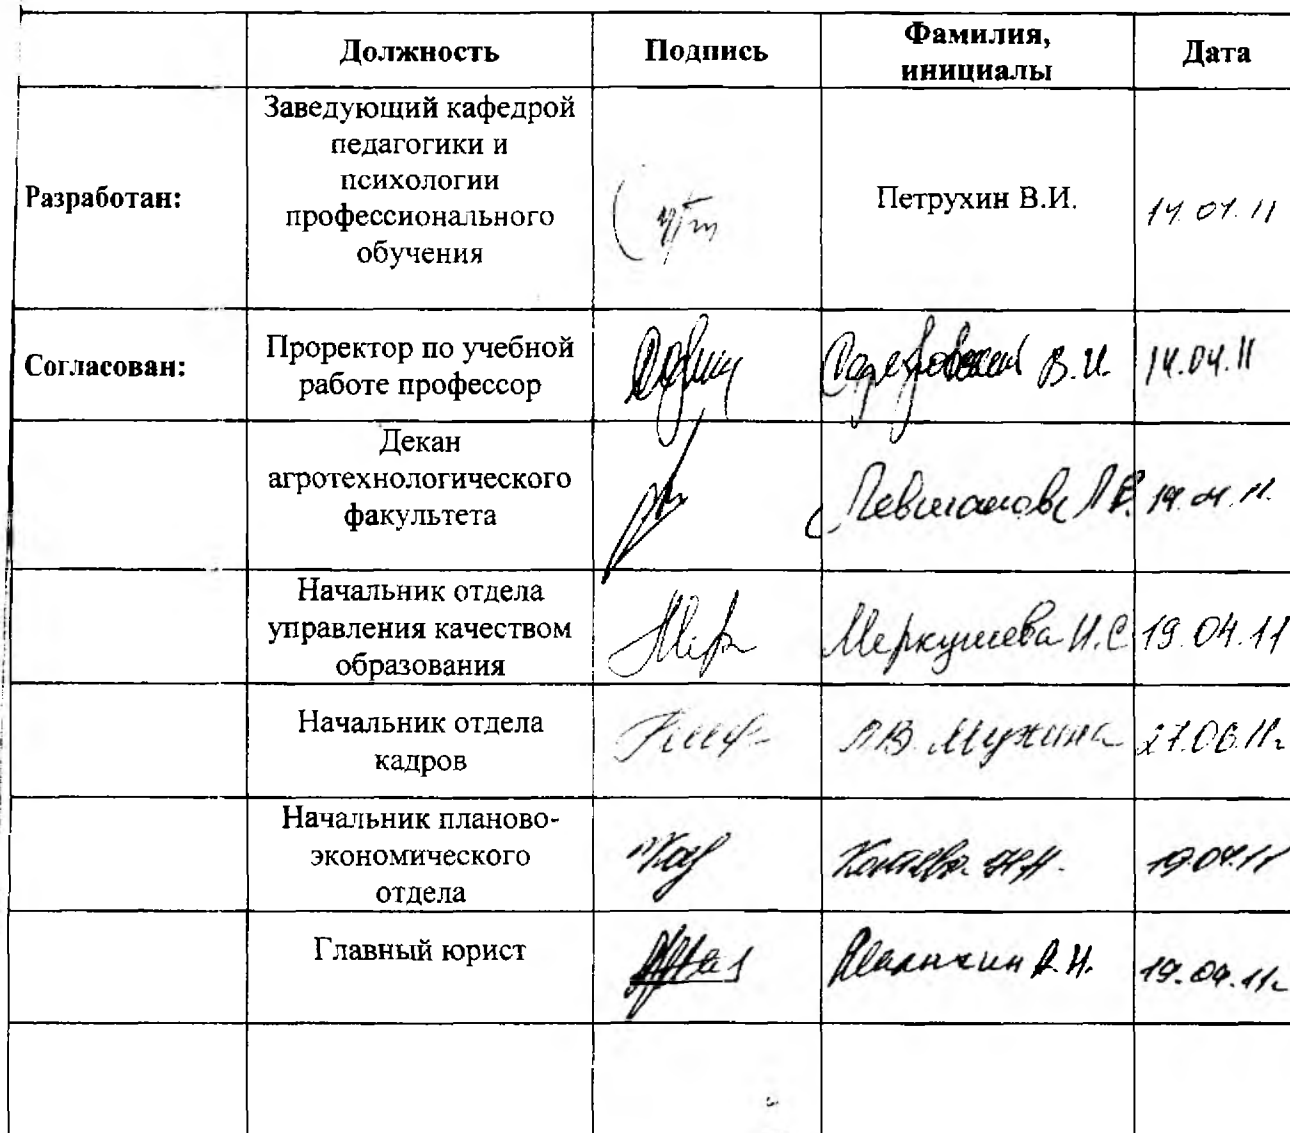 Должность Подпись Фамилия, инициалы Дата
Разработан: Заведующий кафедрой
педагогики и
психологии
профессионального
обучения
Петрухин В.И. 14.04.11
Согласован: Проректор по учебной
работе профессор
В.И. 14.04.11
Декан
агротехнологического
факультета
19.04.11.
Начальник отдела
управления качеством
образования
Меркушева И.С 19.04.11
Начальник отдела
кадров
Л.В. Мухина 27.06.11г
Начальник планово-
экономического
отдела
19.04.11
Главный юрист
19.04.11г